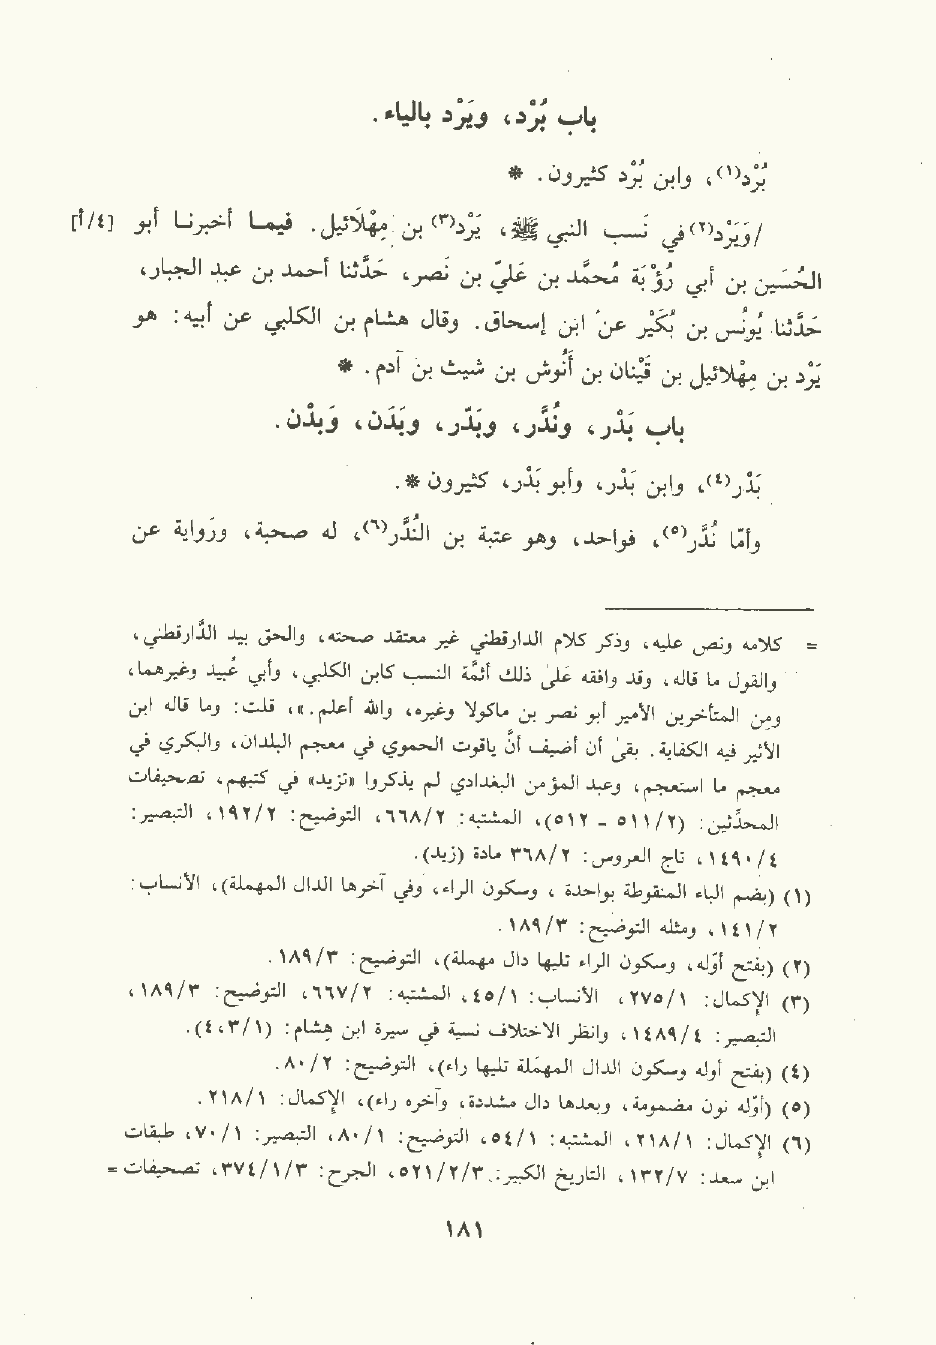 باب بُرْد، ويَرْد بالياء.
بُرْد(١)، وابن بُرْد كثيرون. *
/وَيَرْد(٢) في نَسب النبي ﷺ، يَرْد(٣) بن مِهْلَائيل. فيما أخبرنا أبو [٤/أ]
الحُسَين بن أبي رُؤْبَة مُحمَّد بن عَليّ بن نَصر، حَدَّثنا أحمد بن عبد الجبار،
حَدَّثنا يُونُس بن بُكَيْر عن ابن إسحاق. وقال هشام بن الكلبي عن أبيه: هو
يَرْد بن مِهْلائيل بن قَيْنان بن أَنُوش بن شيث بن آدم. *
باب بَدْر، ونُدَّر، وبَدّر، وبَدَن، وَبدْن.
بَدْر(٤)، وابن بَدْر، وأبو بَدْر، كثيرون *.
وأمّا نُدَّر(٥)، فواحد، وهو عتبة بن النُدَّر(٦)، له صحبة، ورَواية عن
= كلامه ونص عليه، وذكر كلام الدارقطني غير معتقد صحته، والحق بيد الدَّارقطني،
والقول ما قاله، وقد وافقه عَلىٰ ذلك أئمَّة النسب كابن الكلبي، وأبي عُبيد وغيرهما،
ومِن المتأخرين الأمير أبو نصر بن ماكولا وغيره، والله أعلم.»، قلت: وما قاله ابن
الأثير فيه الكفاية. بقىٰ أن أضيف أنَّ ياقوت الحموي في معجم البلدان، والبكري في
معجم ما استعجم، وعبد المؤمن البغدادي لم يذكروا «تزيد» في كتبهم، تصحيفات
المحدِّثين: (٢/٥١١ - ٥١٢)، المشتبه: ٢/٦٦٨، التوضيح: ٢/١٩٢، التبصير:
٤/١٤٩٠، تاج العروس: ٢/٣٦٨ مادة (زيد).
(١) (بضم الباء المنقوطة بواحدة ، وسكون الراء، وفي آخرها الدال المهملة)، الأنساب:
٢/١٤١، ومثله التوضيح: ٣/١٨٩.
(٢) (بفتح أوّله، وسكون الراء تليها دال مهملة)، التوضيح: ٣/١٨٩.
(٣) الإكمال: ١/٢٧٥، الأنساب: ١/٤٥، المشتبه: ٢/٦٦٧، التوضيح: ٣/١٨٩،
التبصير: ٤/١٤٨٩، وانظر الاختلاف في نسبه في سيرة ابن هِشام: (١/٣،٤).
(٤) (بفتح أوله وسكون الدال المهملة تليها راء)، التوضيح: ٢/٨٠.
(٥) (أوّله نون مضمومة، وبعدها دال مشددة، وآخره راء)، الإكمال: ١/٢١٨.
(٦) الإكمال: ١/٢١٨، المشتبه: ١/٥٤، التوضيح: ١/٨٠، التبصير: ١/٧٠، طبقات
ابن سعد: ٧/١٣٢، التاريخ الكبير: ٣/٢/٥٢١، الجرح: ٣/١/٣٧٤، تصحيفات =
١٨١